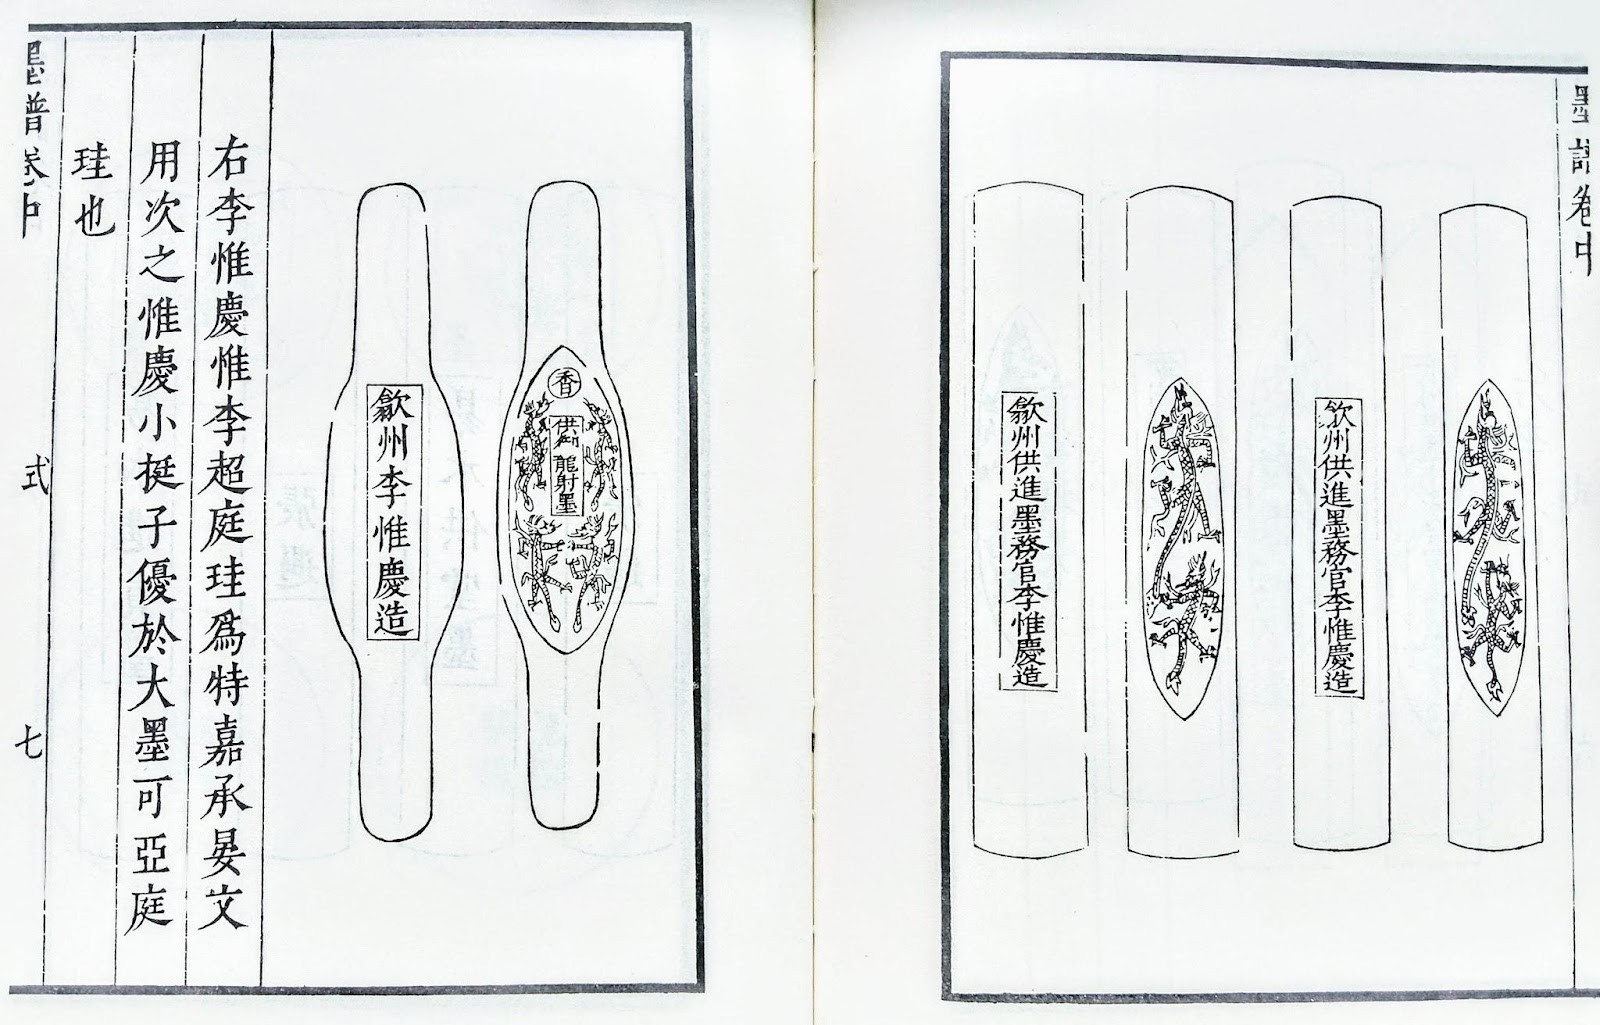 墨譜卷中
歙州供進墨務官李惟慶造
歙州供進墨務官李惟慶造
香
供御龍射墨
歙州李惟慶造
右李惟慶惟李超庭珪爲特嘉承晏文
用次之惟慶小挺子優於大墨可亞庭
珪也
墨譜卷中
式
七